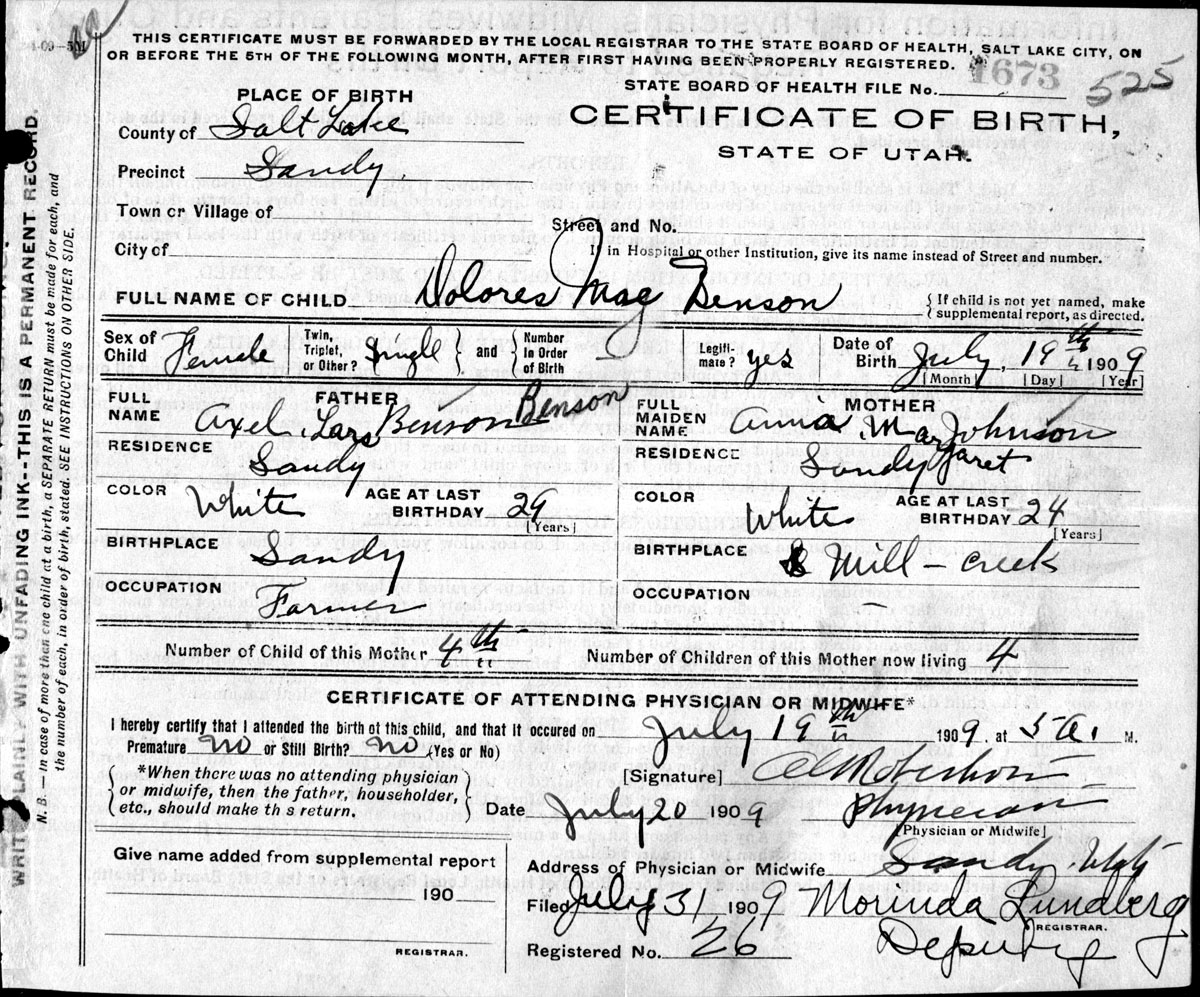 THIS CERTIFICATE MUST BE FORWARDED BY THE LOCAL REGISTRAR TO THE STATE BOARD OF HEALTH, SALT LAKE CITY, ON
OR BEFORE THE 5TH OF THE FOLLOWING MONTH, AFTER FIRST HAVING BEEN PROPERLY REGISTERED.
1673
525
STATE BOARD OF HEALTH FILE No.
PLACE OF BIRTH
CERTIFICATE OF BIRTH,
STATE OF UTAH.
County of Salt Lake
Precinct Sandy
Town or Village of
Street and No.
City of
If in Hospital or other Institution, give its name instead of Street and number.
FULL NAME OF CHILD Dolores Mae Benson
{ If child is not yet named, make
supplemental report, as directed.
Sex of Child Female
Twin, Triplet, or Other? Single } and { Number in Order of Birth
Legitimate? yes
Date of Birth July, 19th 1909
[Month] [Day] [Year]
FATHER
FULL NAME Axel Lars Benson Benson
RESIDENCE Sandy
COLOR White AGE AT LAST BIRTHDAY 29 [Years]
BIRTHPLACE Sandy
OCCUPATION Farmer
MOTHER
FULL MAIDEN NAME Annia Margaret Johnson
RESIDENCE Sandy
COLOR White AGE AT LAST BIRTHDAY 24 [Years]
BIRTHPLACE Mill-creek
OCCUPATION -
Number of Child of this Mother 4th
Number of Children of this Mother now living 4
CERTIFICATE OF ATTENDING PHYSICIAN OR MIDWIFE*
I hereby certify that I attended the birth of this child, and that it occured on July 19th 1909. at 5 a. M.
Premature no or Still Birth? no (Yes or No)
*When there was no attending physician
or midwife, then the father, householder,
etc., should make this return.
[Signature] Robertson
Date July 20 1909 Physician
[Physician or Midwife]
Give name added from supplemental report
190
REGISTRAR.
Address of Physician or Midwife Sandy Utah
Filed July 31 1909 Morinda Lundberg
REGISTRAR.
Registered No. 26 Deputy
WRITE PLAINLY WITH UNFADING INK--THIS IS A PERMANENT RECORD.
N. B.— In case of more than one child at a birth, a SEPARATE RETURN must be made for each, and
the number of each, in order of birth, stated. SEE INSTRUCTIONS ON OTHER SIDE.